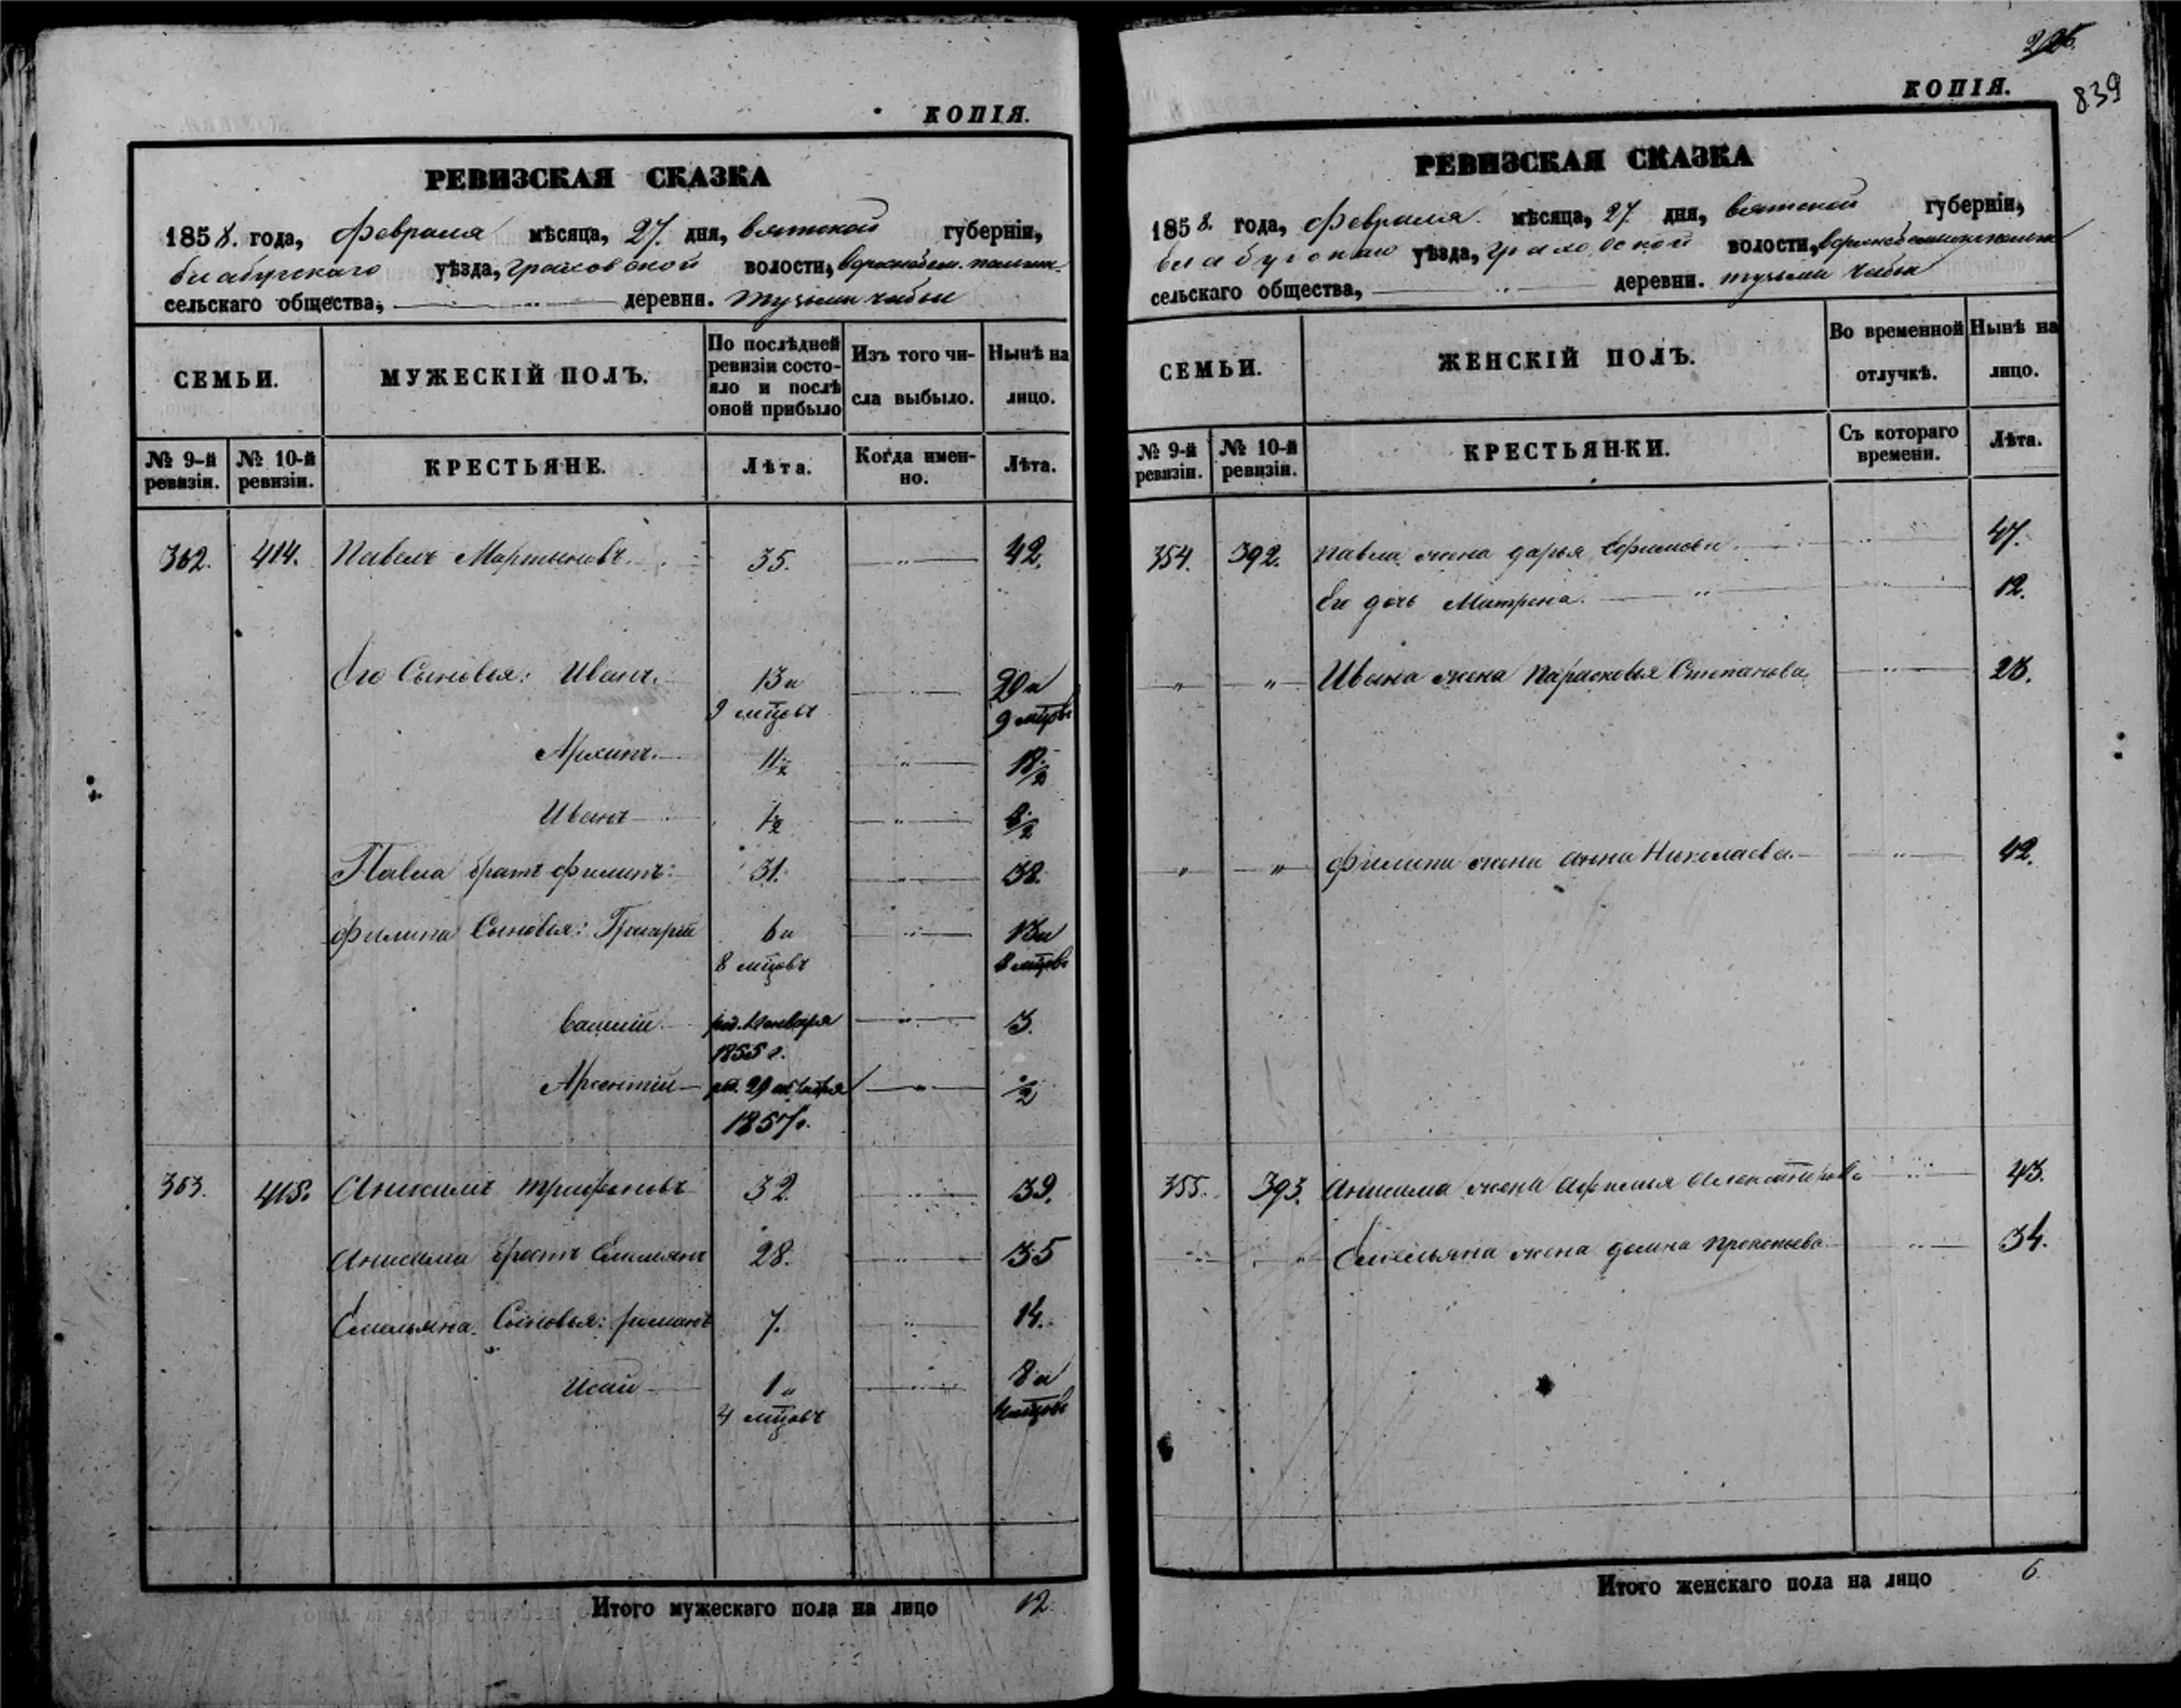 КОПІЯ.
РЕВИЗСКАЯ СКАЗКА
1858. года, февраля мѣсяца, 27. дня, вятской губерніи,
елабугскаго уѣзда, граховской волости,
сельскаго общества, деревня. тузьми чабьи
СЕМЬИ.
МУЖЕСКІЙ ПОЛЪ.
По послѣдней ревизіи состояло и послѣ оной прибыло
Изъ того числа выбыло.
Нынѣ на лицо.
№ 9-й ревизіи.
№ 10-й ревизіи.
КРЕСТЬЯНЕ.
Лѣта.
Когда именно.
Лѣта.
362. 414. Павелъ Мартыновъ. 35. 42.
Его Сыновья: Иванъ. 13 и 20 и
9 мцовъ 9 мцовъ
Архипъ. 11 ½ 18 ½
Иванъ 1 ½ 8 ½
Павла братъ филипъ: 31. 38.
филипа Сыновья: Григорій 6 и 13 и
8 мцовъ 8 мцовъ
василій. род. января 3.
1855 г.
Арсентій род. 29 1857 г. ½
363. 415. Анисимъ трифоновъ 32. 39.
Анисима братъ Емельянъ 28. 35
Емельяна Сыновья: романъ 7. 14.
Исай 1 и 8 и
4 мцовъ 4 мцовъ
Итого мужескаго пола на лицо 12.
226.
839
КОПІЯ.
РЕВИЗСКАЯ СКАЗКА
1858. года, февраля мѣсяца, 27 дня, вятской губерніи,
елабугскаго уѣзда, граховской волости,
сельскаго общества, деревни. тузьми чабьи
СЕМЬИ.
ЖЕНСКІЙ ПОЛЪ.
Во временной отлучкѣ.
Нынѣ на лицо.
№ 9-й ревизіи.
№ 10-й ревизіи.
КРЕСТЬЯНКИ.
Съ котораго времени.
Лѣта.
354. 392. павла жена дарья Ефимова. 47.
Его дочь Матрена. 12.
" " Ивана жена Парасковья Степанова 23.
" " филипа жена анна Николаева. 42.
355. 393. Анисима жена 43.
" " Емельяна жена домна прокопьева. 34.
Итого женскаго пола на лицо 6